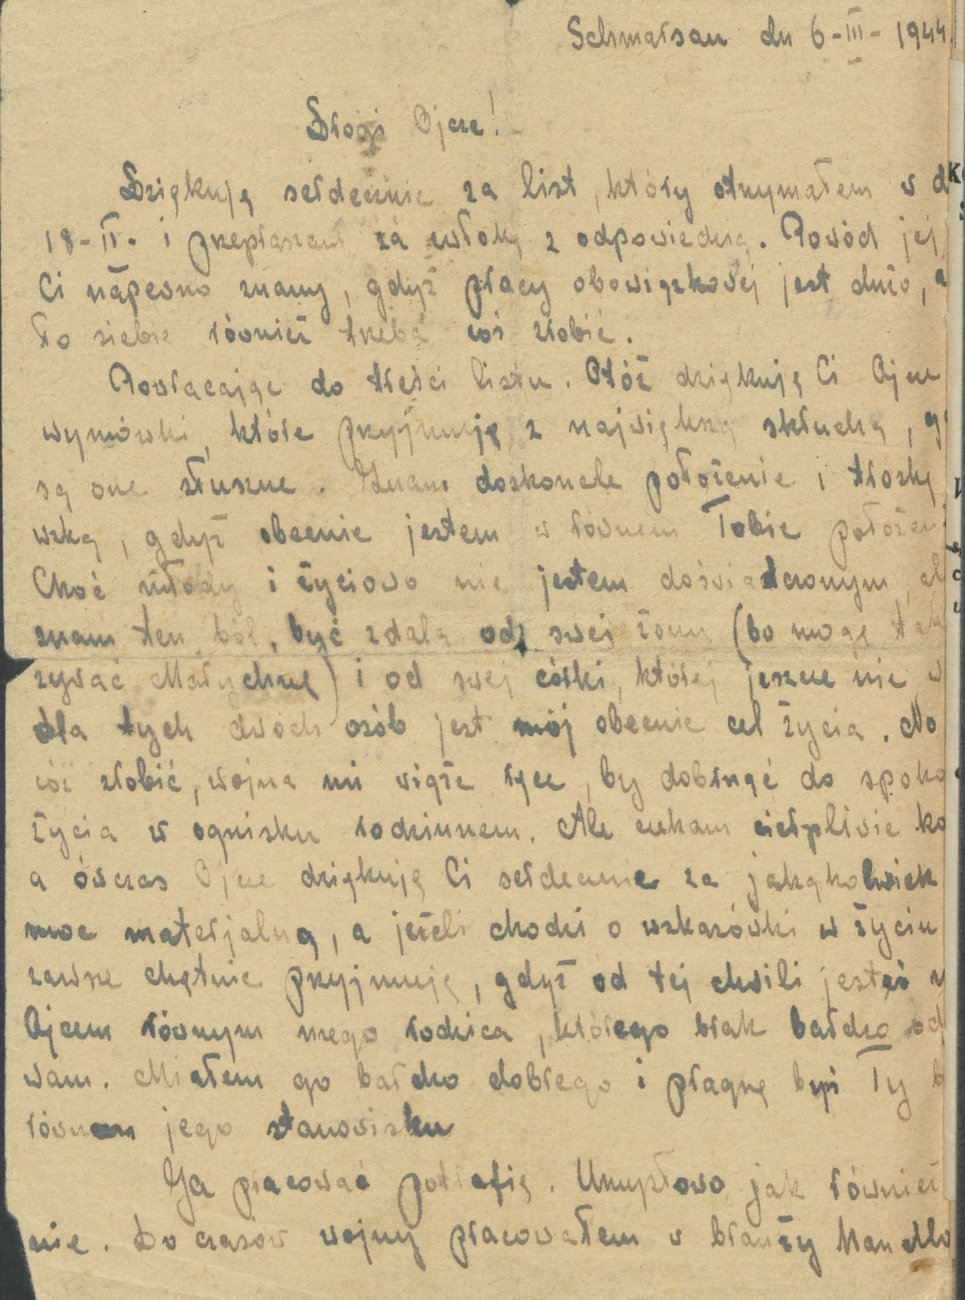 Schmarsau dn 6-III-1944.
Drogi Ojcze!
Dziękuję serdecznie za list, który otrzymałem w d
18-II- i przepraszam za zwłokę z odpowiedzią. Powód jej
Ci napewno znany, gdyż pracy obowiązkowej jest dużo, a
to siebie również trzeba coś zrobić.
Powracając do treści listu. Otóż dziękuję Ci Ojcze
wymówki, które przyjmuję z największą skruchą, g
są one słuszne. Znam doskonale położenie i troskę
wską, gdyż obecnie jestem w równem Tobie położeni
Choć młody i życiowo nie jestem doświadczonym, al
znam ten ból, być zdala od swej żony (bo mogę tak
zywać Marychnę) i od swej córki, której jeszcze nie w
dla tych dwóch osób jest mój obecnie cel życia. No
cóż zrobić, wojna mi wiąże ręce, by dobrnąć do spoko
życia w ognisku rodzinnem. Ale czekam cierpliwie ko
a ówczas Ojcze dziękuję Ci serdecznie za jakąkolwiek
moc materjalną, a jeżeli chodzi o wskazówki w życiu
zawsze chętnie przyjmuję, gdyż od tej chwili jesteś
Ojcem równym mego rodzica, którego brak bardzo od
wam. Miałem go bardzo dobrego i pragnę byś Ty b
równem jego stanowisku
Ja pracować potrafię. Umysłowo jak również
nie. Do czasów wojny pracowałem w branży handlo